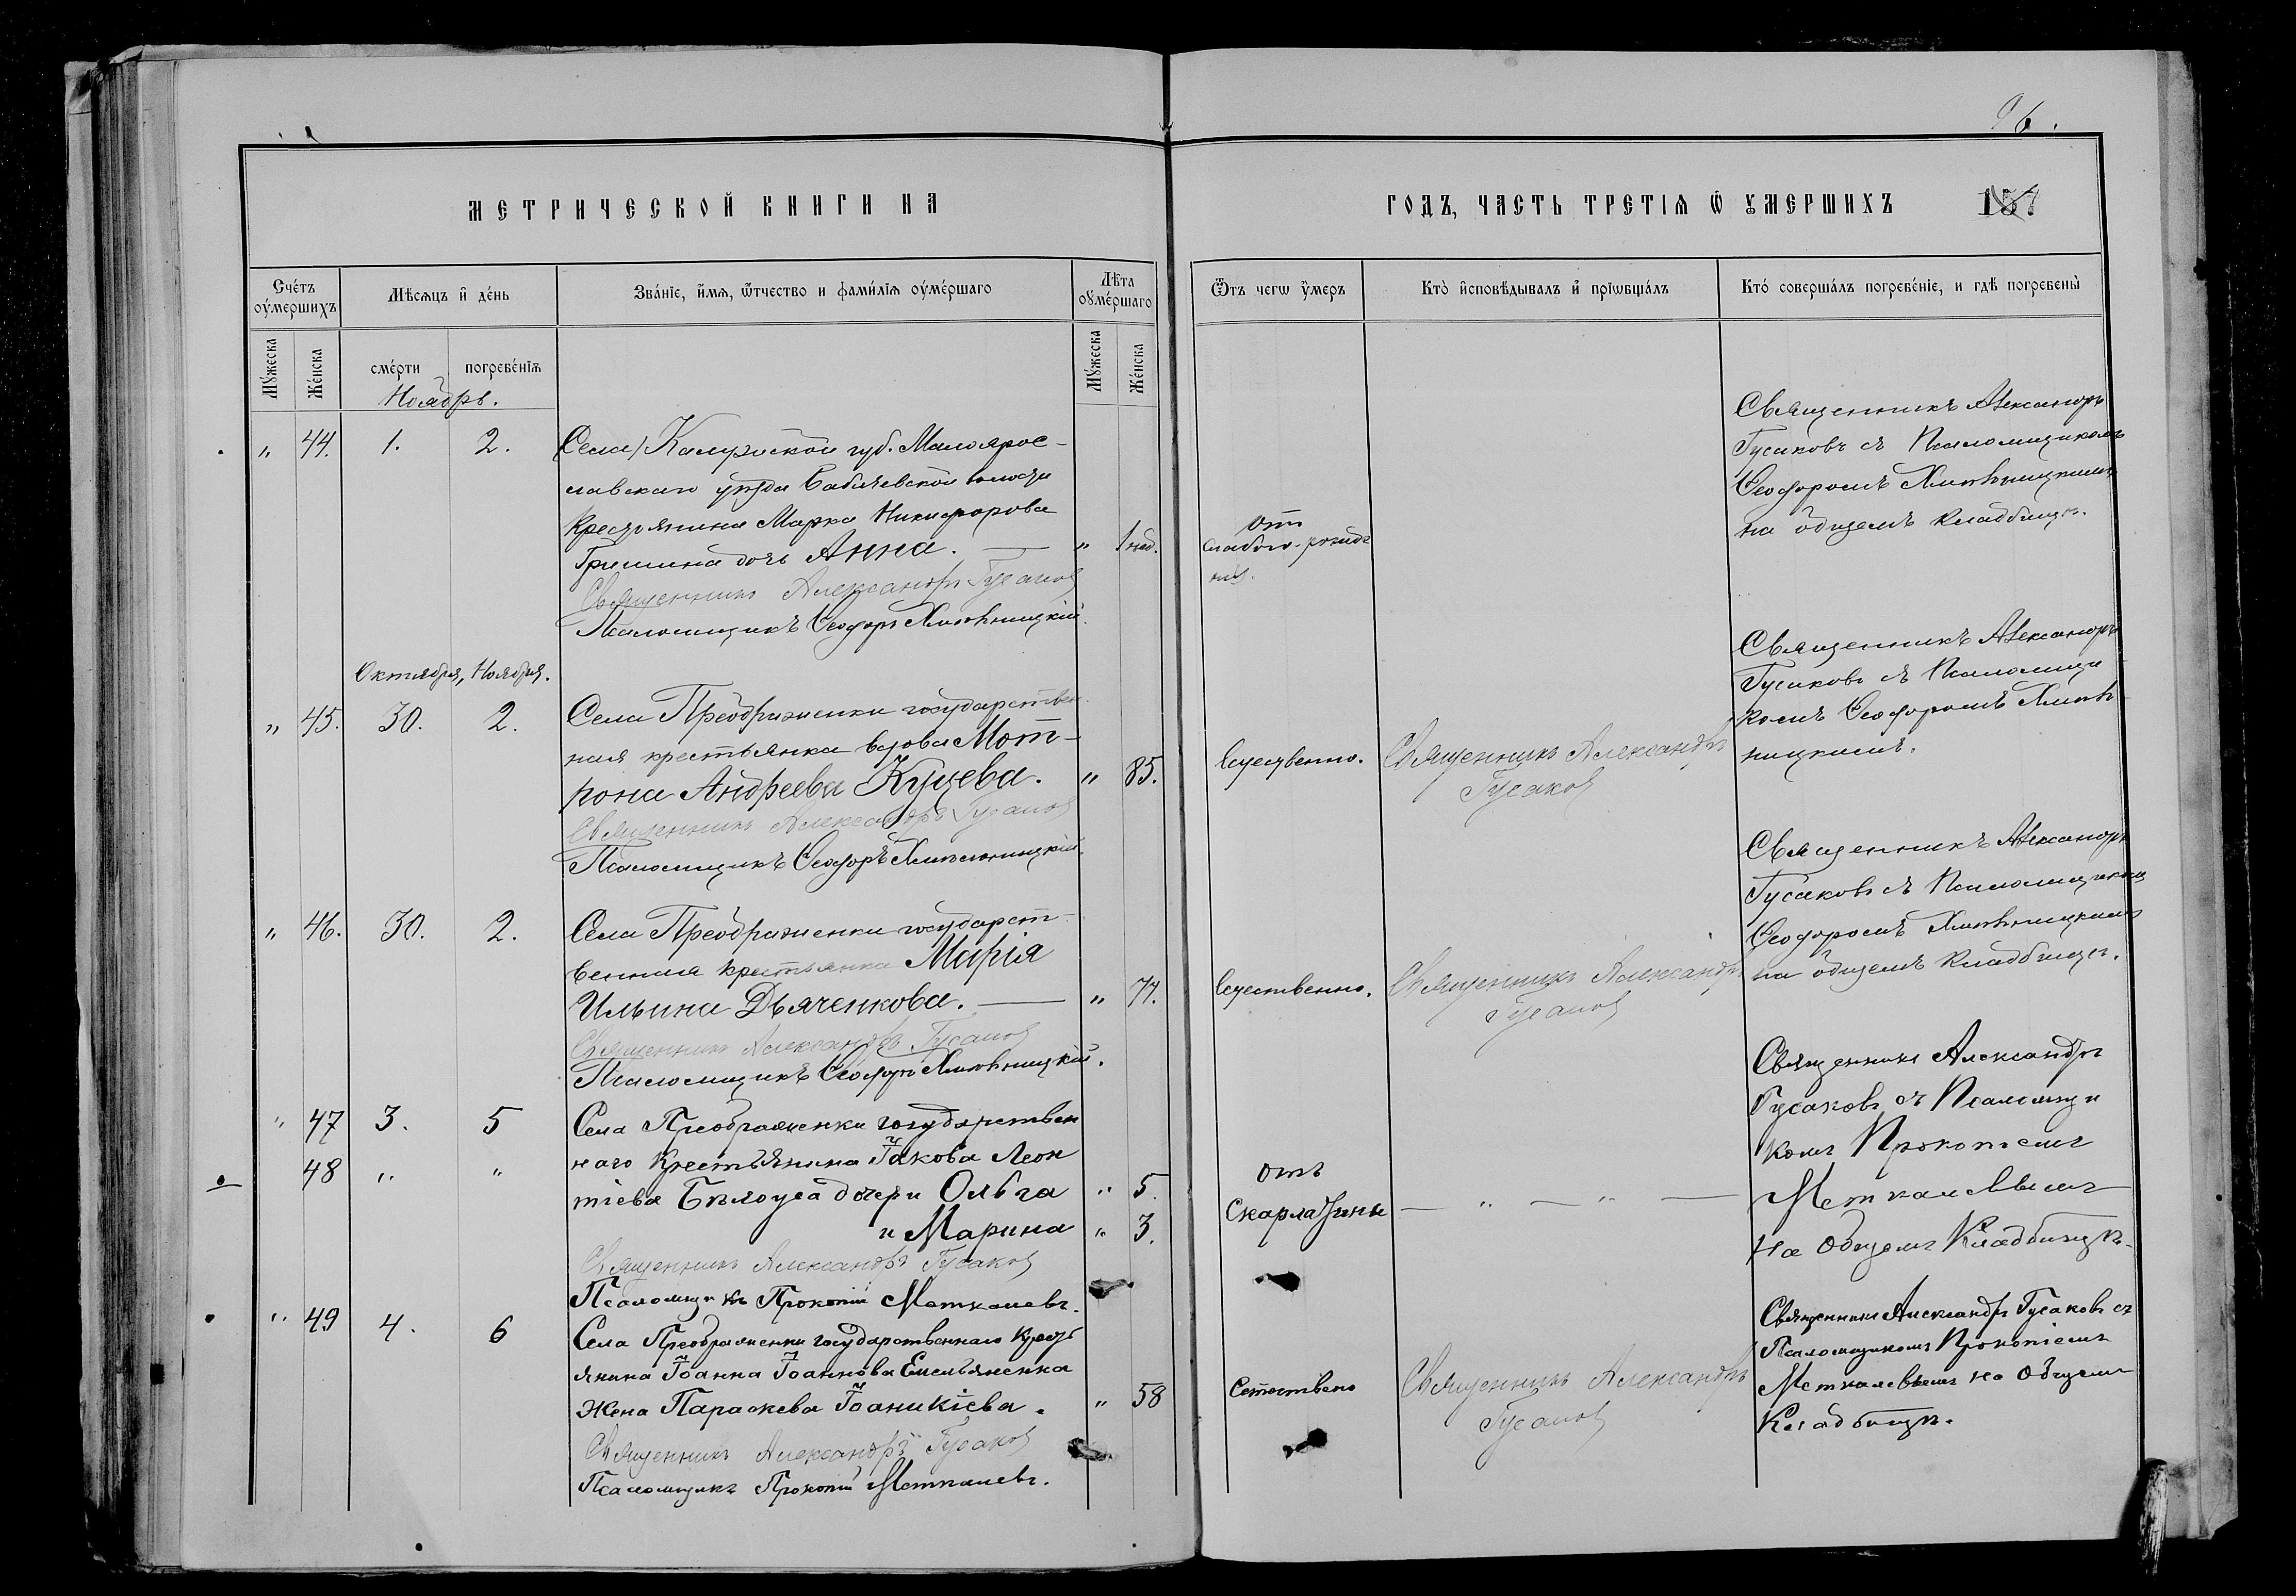 96.
МЕТРИЧЕСКОЙ КНИГИ НА
ГОДЪ, ЧАСТЬ ТРЕТІѦ Ѿ ꙊМЕРШИХЪ
157
Сче́тъ оу́мершихъ
Мѣсѧцъ и҆ де́нь
Зва́нїе, и҆́мѧ, ѻ҆́тчество и фами́лїѧ оу҆ме́ршаго
Лѣта оу҆ме́ршаго
Ѿ чегѡ ᲂу҆́меръ
Кто̀ и҆сповѣ́дывалъ и҆ прїѡбща́лъ
Кто́ соверша́лъ погребе́нїе, и гдѣ̀ погребены̀
Му́жеска
Же́нска
сме́рти
погребе́нїѧ
Му́жеска
Же́нска
Ноябрь.
„ 44. 1. 2.
(Села) Калужской губ. Малоярос-
лавскаго уѣзда Бабичевской волости
Крестьянина Марка Никифорова
Гришина дочь Анна. — „ 1 нед.
Священникъ Александръ Гусаков
Псаломщикъ Ѳеодоръ Хмѣльницкій.
отъ
слабаго рожде
нія.
Священникъ Александръ
Гусаковъ съ Псаломщикомъ
Ѳеодоромъ Хмѣльницкимъ
на общемъ кладбищѣ.
Октября, Ноября.
„ 45. 30. 2.
Села Преображенки государствен-
ная крестьянка вдова Мот-
рона Андреева Куцева. „ 85.
Священникъ Александръ Гусаков
Псаломщикъ Ѳеодоръ Хмѣльницкій.
Естественно.
Священникъ Александръ
Гусаков
Священникъ Александръ
Гусаковъ съ Псаломщи
комъ Ѳеодоромъ Хмѣль
ницкимъ.
„ 46. 30. 2.
Села Преображенки государст-
венная крестьянка Марія
Ильина Дьяченкова. — „ 77.
Священникъ Александръ Гусаков
Псаломщикъ Ѳеодоръ Хмѣльницкій.
Естественно.
Священникъ Александръ
Гусаков
Священникъ Александръ
Гусаковъ съ Псаломщикомъ
Ѳеодоромъ Хмѣльницкимъ
на общемъ кладбищѣ.
„ 47 3. 5
Села Преображенки государствен
48 „ „
наго Крестьянина Іакова Леон
тіева Бѣлоуса дочери Ольга „ 5.
и Марина „ 3.
Священникъ Александръ Гусаков
Псаломщикъ Прокопій Меткалевъ.
Отъ
Скарлатины
— „ — „ —
Священникъ Александръ
Гусаковъ съ Псаломщи
комъ Прокопіемъ
Меткалевымъ
На Общемъ Кладбищѣ.
„ 49 4. 6
Села Преображенки государственнаго Кресть
янина Іоанна Іоаннова Емельяненка
Жена Параскева Іоаникіева. „ 58
Священникъ Александръ Гусаков
Псаломщикъ Прокопій Меткалевъ.
Естествено
Священникъ Александръ
Гусаков
Священникъ Александръ Гусаковъ съ
Псаломщикомъ Прокопіемъ
Меткалевымъ На Общемъ
Кладбищѣ.